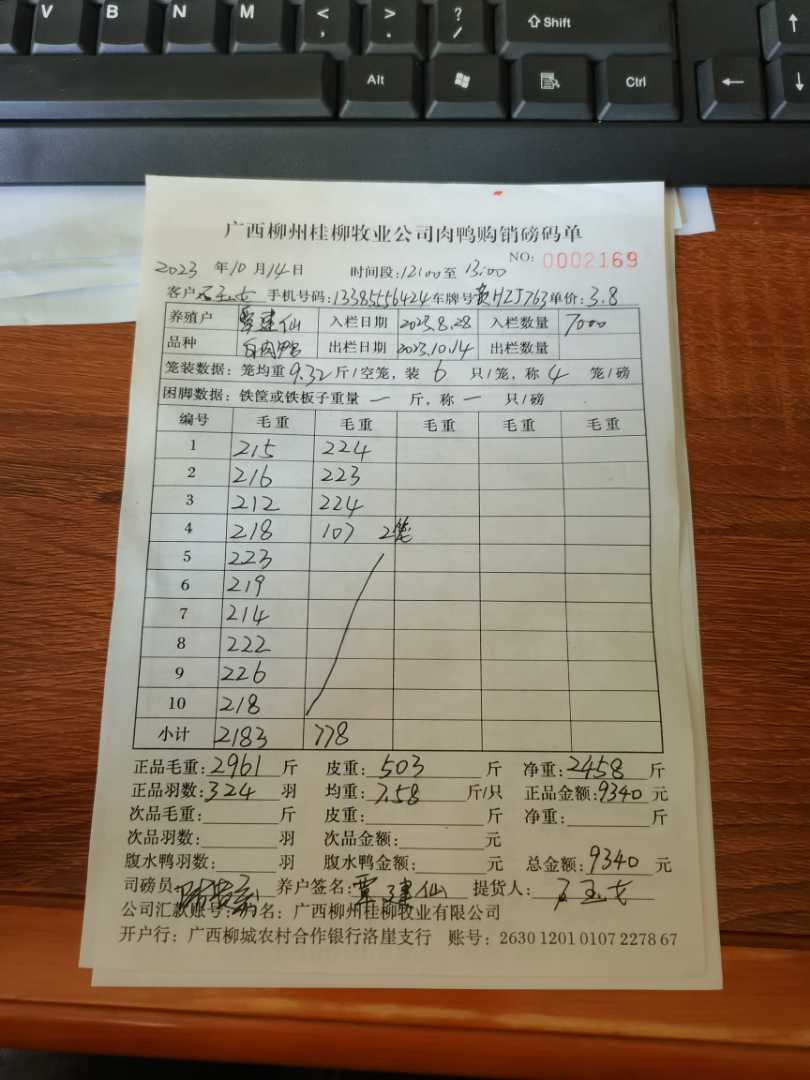 V B N M < , > . ? / ⇧ Shift ↑
Alt Ctrl ← ↓
广西柳州桂柳牧业公司肉鸭购销磅码单
NO: 0002169
2023 年 10 月 14 日 时间段: 12:00 至 13:00
客户 石玉七 手机号码: 13385556424 车牌号 HZJ763 单价: 3.8
养殖户 覃建仙 入栏日期 2023.8.28 入栏数量 7000
品种 白肉鸭 出栏日期 2023.10.14 出栏数量
笼装数据: 笼均重 9.32 斤/空笼, 装 6 只/笼, 称 4 笼/磅
困脚数据: 铁筐或铁板子重量 一 斤, 称 一 只/磅
编号 毛重 毛重 毛重 毛重 毛重
1 215 224
2 216 223
3 212 224
4 218 107 2笼
5 223
6 219
7 214
8 222
9 226
10 218
小计 2183 778
正品毛重: 2961 斤 皮重: 503 斤 净重: 2458 斤
正品羽数: 324 羽 均重: 7.58 斤/只 正品金额: 9340 元
次品毛重: 斤 皮重: 斤 净重: 斤
次品羽数: 羽 次品金额: 元
腹水鸭羽数: 羽 腹水鸭金额: 元 总金额: 9340 元
司磅员: 养户签名: 覃建仙 提货人: 石玉七
公司汇款账号: 户名: 广西柳州桂柳牧业有限公司
开户行: 广西柳城农村合作银行洛崖支行 账号: 2630 1201 0107 2278 67